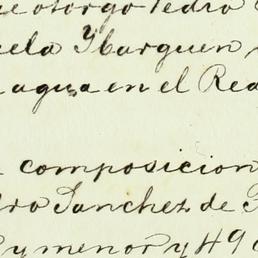 otorgo Pedro
Ybarguen
agua en el Rea
composicion
dro Sanchez de
y menor y 49